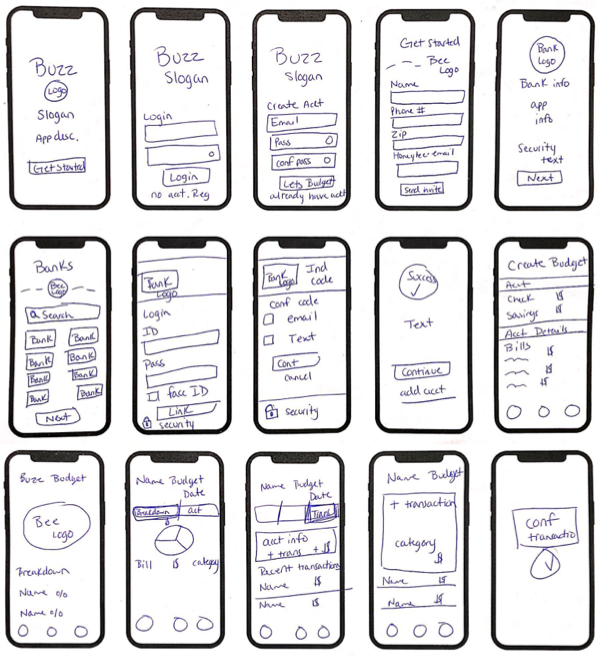 Buzz
Logo
Slogan
App desc.
Get Started
Buzz
Slogan
Login
Login
no act. Reg
Buzz
Slogan
Create Acct
Email
Pass
conf pass
Lets Budget
already have act
Get Started
Bee
Logo
Name
Phone #
Zip
Honeybee email
Send invite
Bank
Logo
Bank info
app
info
Security
text
Next
Banks
Bee
Logo
Search
Bank Bank
Bank Bank
Bank Bank
Bank Bank
Next
Bank
Logo
Login
ID
Pass
face ID
Link
security
Bank
Logo
Ind
code
Conf code
email
Text
Cont
cancel
security
Success
Text
Continue
add acct
Create Budget
Acct
Check $
Savings $
Acct Details
Bills $
$
$
Buzz Budget
Bee
Logo
Breakdown
Name %
Name %
Name Budget
Date
Breakdown act
Bill $ category
Name Budget
Date
Trans
acct info
+ trans + $
Recent transactions
Name $
Name $
Name Budget
+ transaction
category
$
Name $
Name $
conf
transactio